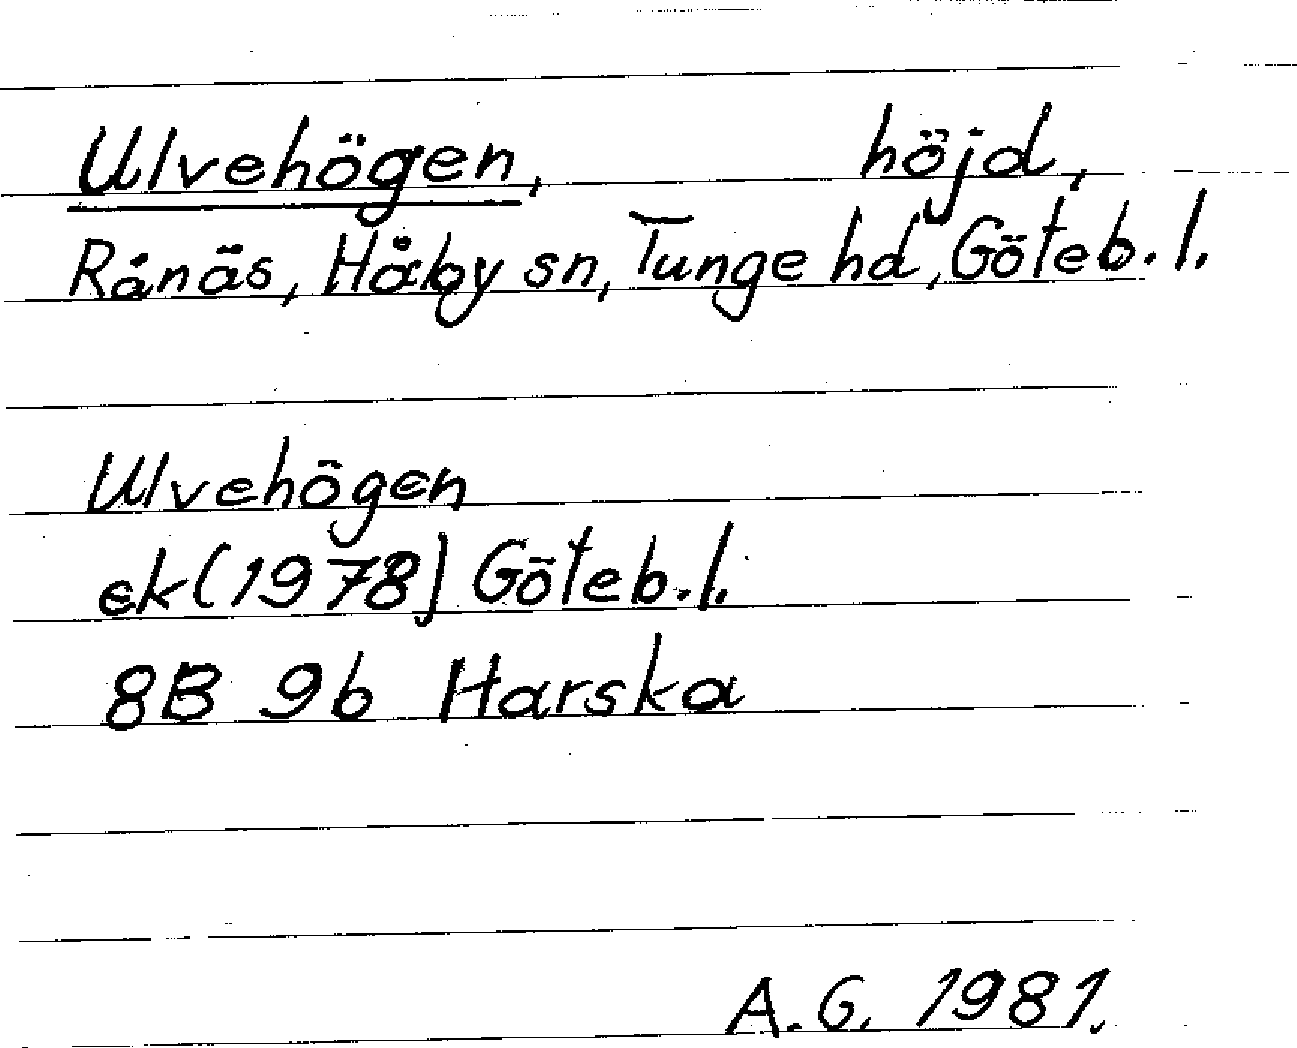 Ulvehögen, höjd,
Rånäs, Håby sn, Tunge hd, Göteb. l.
Ulvehögen
ek (1978) Göteb. l.
8B 9b Harska
A.G. 1981.